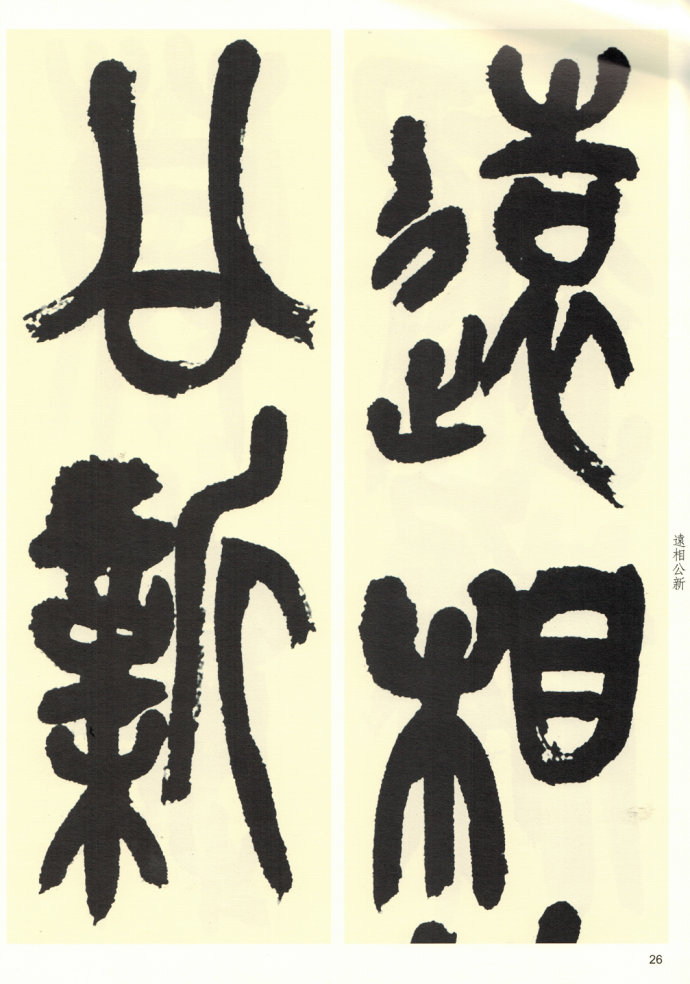 遠相
公新
遠相公新
26